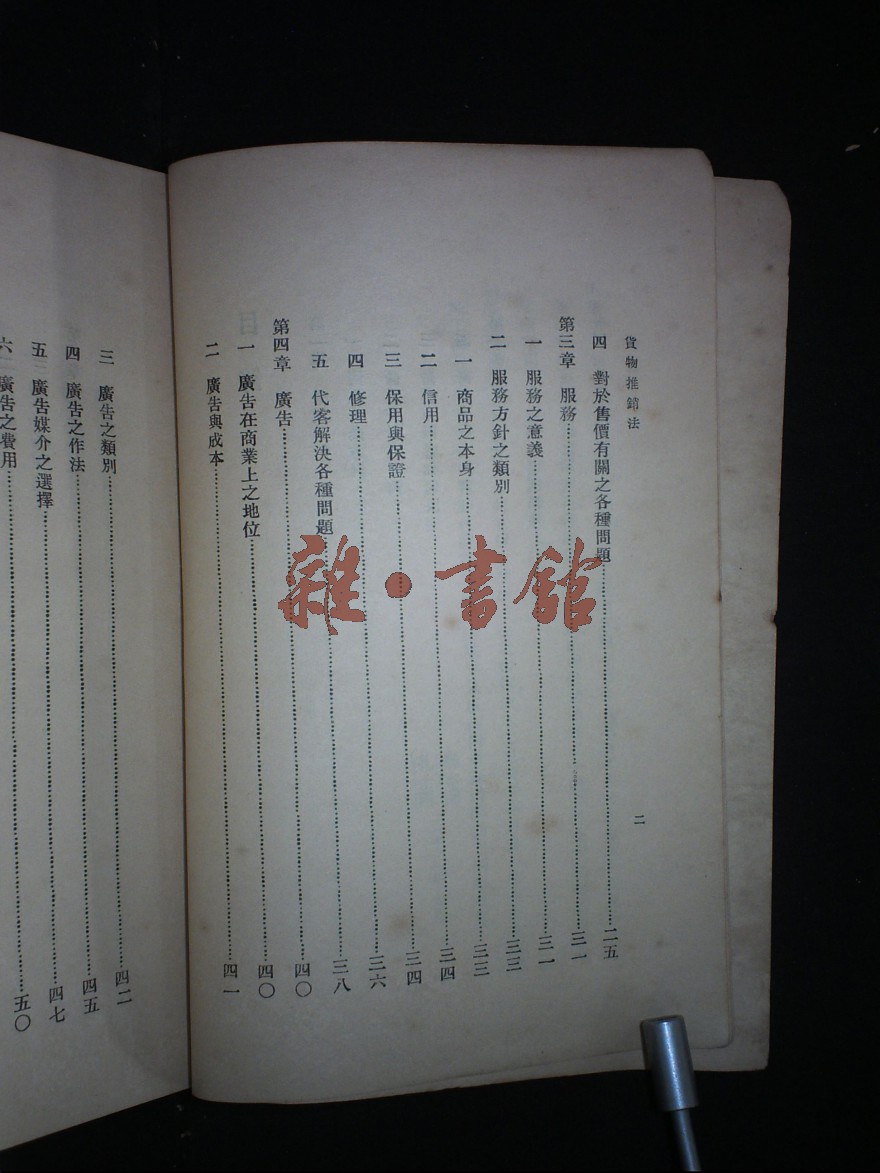 貨物推銷法
二
四 對於售價有關之各種問題……二五
第三章 服務……三一
一 服務之意義……三一
二 服務方針之類別……三三
一 商品之本身……三三
二 信用……三四
三 保用與保證……三四
四 修理……三六
五 代客解決各種問題……三八
第四章 廣告……四〇
一 廣告在商業上之地位……四〇
二 廣告與成本……四一
三 廣告之類別……四二
四 廣告之作法……四五
五 廣告媒介之選擇……四七
六 廣告之費用……五〇
雜·書館